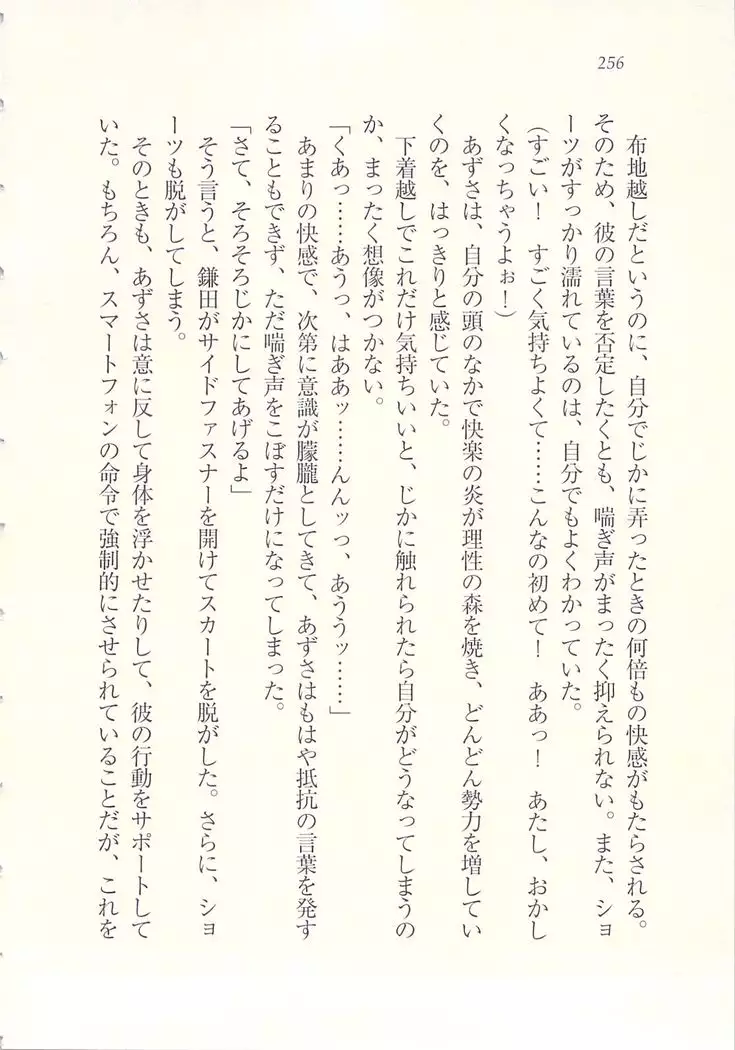 256
布地越しだというのに、自分でじかに弄ったときの何倍もの快感がもたらされる。
そのため、彼の言葉を否定したくとも、喘ぎ声がまったく抑えられない。また、ショ
ーツがすっかり濡れているのは、自分でもよくわかっていた。
（すごい！　すごく気持ちよくて……こんなの初めて！　ああっ！　あたし、おかし
くなっちゃうよぉ！）
あずさは、自分の頭のなかで快楽の炎が理性の森を焼き、どんどん勢力を増してい
くのを、はっきりと感じていた。
下着越しでこれだけ気持ちいいと、じかに触れられたら自分がどうなってしまうの
か、まったく想像がつかない。
「くあっ……あうっ、はああッ……んんッっ、あううッ……」
あまりの快感で、次第に意識が朦朧としてきて、あずさはもはや抵抗の言葉を発す
ることもできず、ただ喘ぎ声をこぼすだけになってしまった。
「さて、そろそろじかにしてあげるよ」
そう言うと、鎌田がサイドファスナーを開けてスカートを脱がした。さらに、ショ
ーツも脱がしてしまう。
そのときも、あずさは意に反して身体を浮かせたりして、彼の行動をサポートして
いた。もちろん、スマートフォンの命令で強制的にさせられていることだが、これを